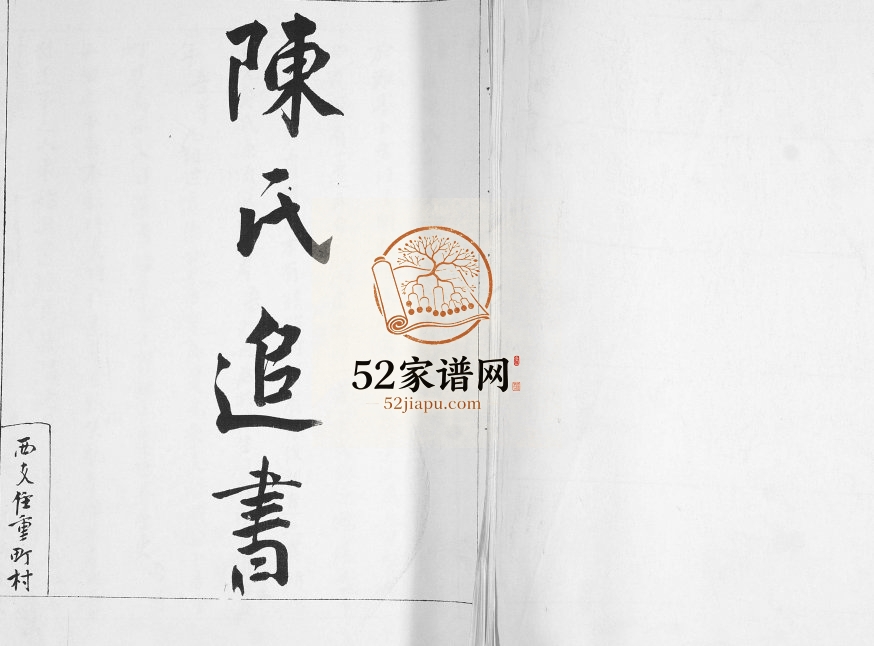 陳氏追書
西支住重町村
52家谱网
52jiapu.com